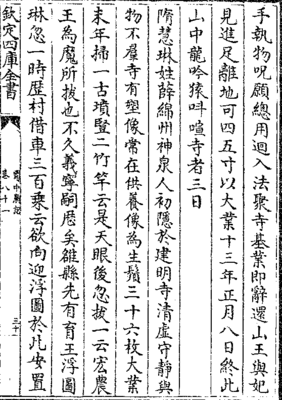 手執物呪願總用迴入法聚寺基業即辭還山王與妃
見進足離地可四五寸以大業十三年正月八日終此
山中龍吟猿叫喧寺者三日
隋慧琳姓薛綿州神泉人初隱於建明寺清虛守靜與
物不羣寺有塑像常在供養像為生鬚三十六枚大業
末年掃一古墳豎二竹竿云是天眼後忽拔一云宏農
王為魔所拔也不久義寧嗣厯矣雒縣先有育王浮圖
琳忽一時歴村借車三百乗云欲向迎浮圖於此安置
欽定四庫全書
蜀中廣記
卷八十一
三十一